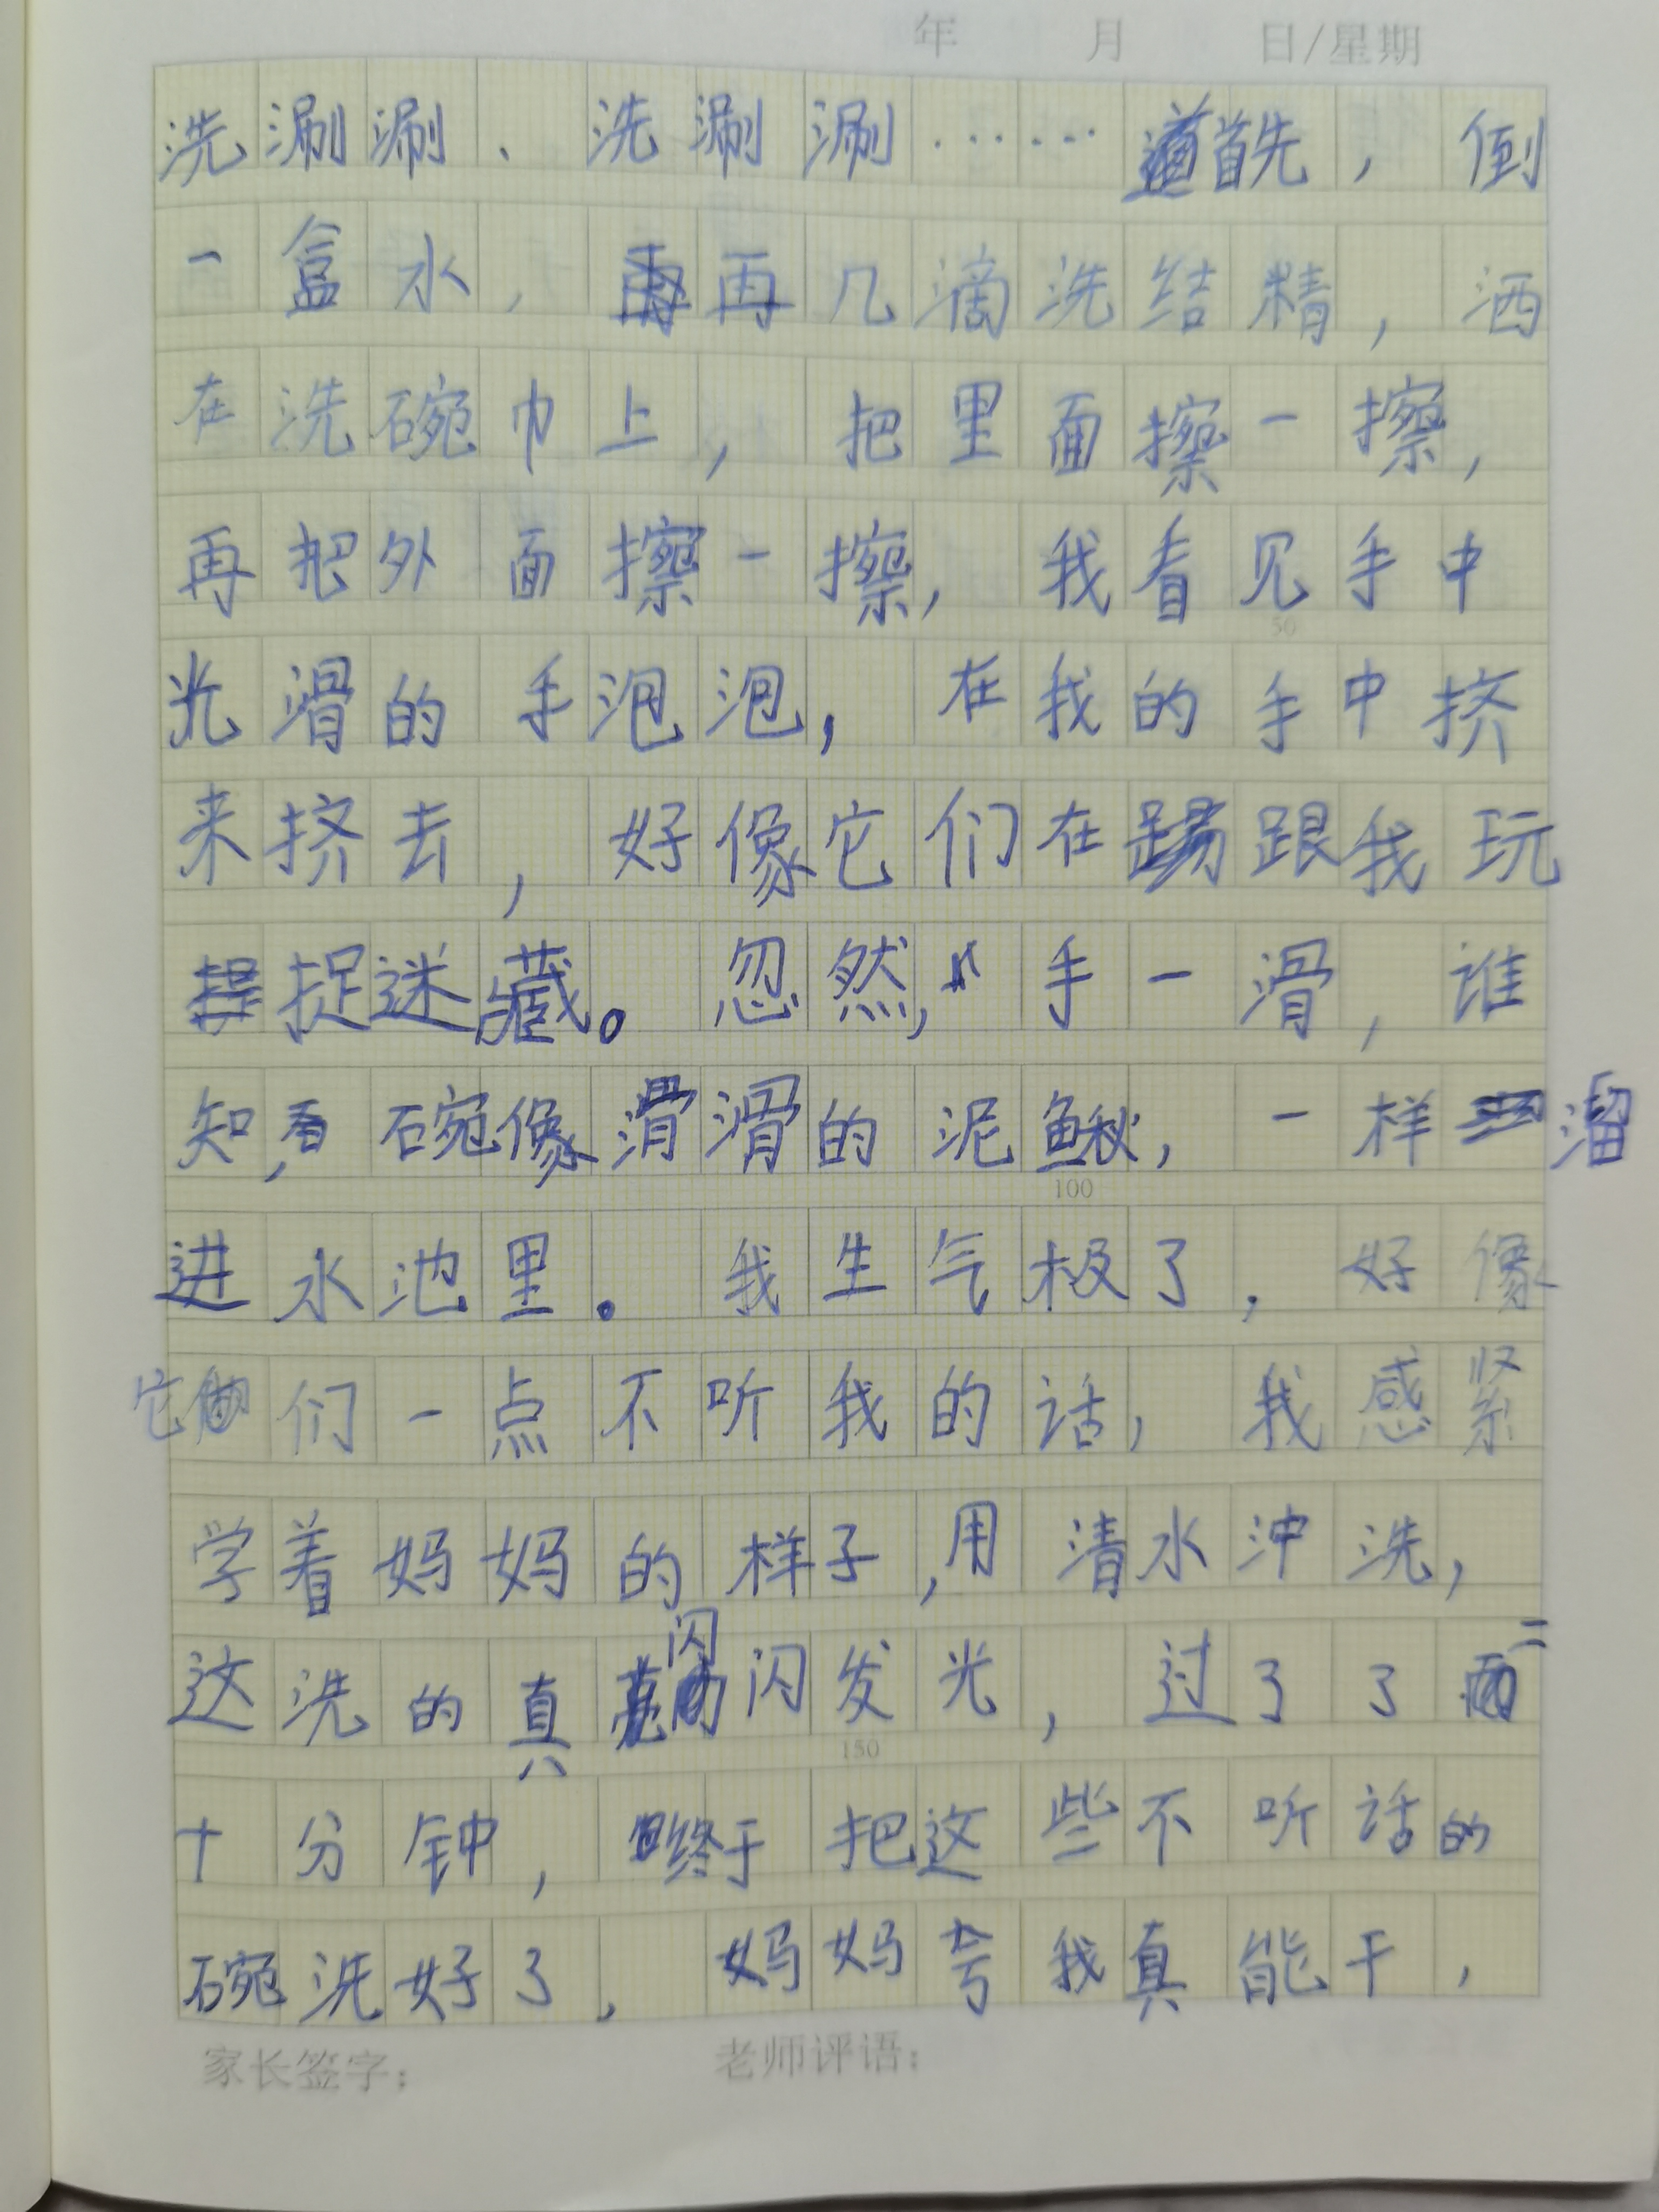 年 月 日/星期
洗涮涮、洗涮涮……首先，倒
一盒水，再几滴洗结精，洒
在洗碗巾上，把里面擦一擦，
再把外面擦一擦，我看见手中
光滑的手泡泡，在我的手中挤
来挤去，好像它们在跟我玩
捉迷藏。忽然，手一滑，谁
知，看碗像滑滑的泥鳅，一样溜
进水池里。我生气极了，好像
它们一点不听我的话，我感紧
学着妈妈的样子，用清水冲洗，
50
这洗的真闪闪发光，过了了二
100
十分钟，终于把这些不听话的
150
碗洗好了，妈妈夸我真能干，
家长签字： 老师评语：